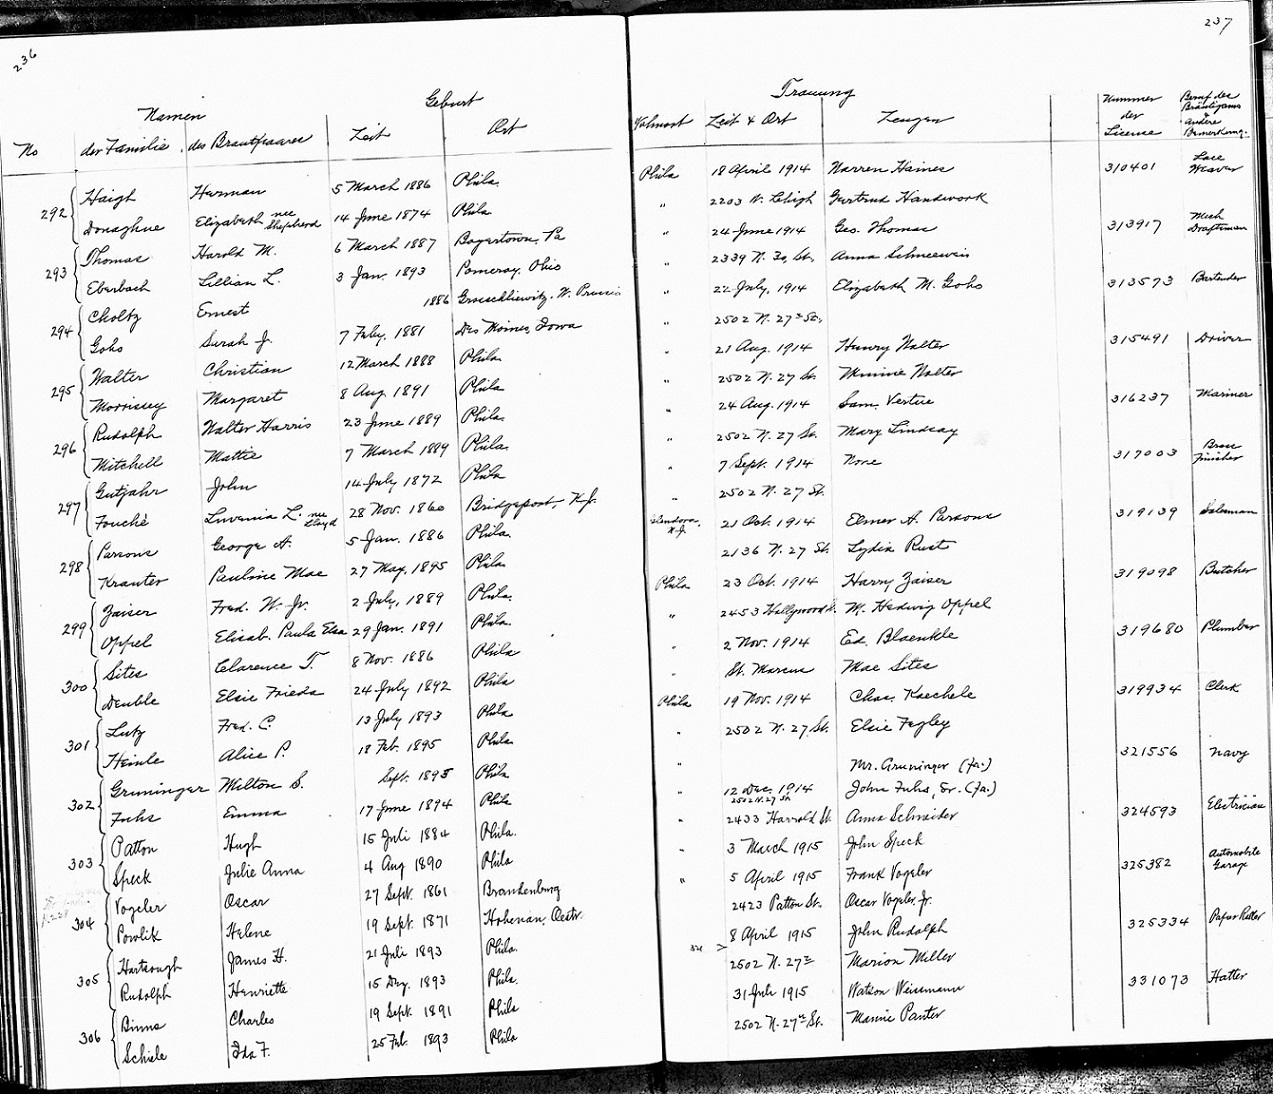 236
Namen
Geburt
No
der Familie
des Brautpaares
Zeit
Ort
292
Haigh Herman 5 March 1886 Phila.
Donaghue Elizabeth nee Shepherd 14 June 1874 Phila
293
Thomas Harold M. 6 March 1887 Boyertown, Pa
Eberbach Lillian L. 3 Jan. 1893 Pomeroy, Ohio
294
Choltz Ernest 1886 W. Prussia
Gohs Sarah J. 7 Feby. 1881 Des Moines, Iowa
295
Walter Christian 12 March 1888 Phila
Morrissey Margaret 8 Aug. 1891 Phila
296
Rudolph Walter Harris 23 June 1889 Phila.
Mitchell Mattie 7 March 1889 Phila.
297
Gutjahr John 14 July 1872 Phila
Fouché Luvenia L. nee Lloyd 28 Nov. 1860 Bridgeport, N.J.
298
Parsons George A. 5 Jan. 1886 Phila.
Krauter Pauline Mae 27 May. 1895 Phila
299
Zaiser Fred. W. Jr. 2 July, 1889 Phila.
Oppel Elisab. Paula Elsa 29 Jan. 1891 Phila.
300
Sites Clarence T. 8 Nov. 1886 Phila
Deuble Elsie Frieda 24 July 1892 Phila
301
Lutz Fred. C. 13 July 1893 Phila
Heinle Alice P. 18 Feb. 1895 Phila.
302
Gruninger Milton S. Sept. 1895 Phila
Fuhs Emma 17 June 1894 Phila
303
Patton Hugh 15 Juli 1884 Phila.
Speck Julie Anna 4 Aug 1890 Phila
304
Vogeler Oscar 27 Sept. 1861 Brandenburg
Powlik Helene 19 Sept. 1871 Hohenau, Oestr.
305
Hartsough James H. 21 Juli 1893 Phila.
Rudolph Henriette 15 Dez. 1893 Phila.
306
Binns Charles 19 Sept. 1891 Phila
Schiele Ida F. 25 Feb. 1893 Phila
237
Trauung
Wohnort
Zeit & Ort
Zeugen
Nummer der License
Beruf des Bräutigams & andere Bemerkung.
Phila 18 April 1914 Warren Haines 310401 Lace Weaver
" 2203 W. Lehigh Gertrud Handwork
" 24 June 1914 Geo. Thomas 313917 Mech Draftsman
" 2339 N. 30 St. Anna Schneeweis
" 22 July, 1914 Elizabeth M. Gohs 313573 Bartender
" 2502 N. 27th St.
" 21 Aug. 1914 Henry Walter 315491 Driver
" 2502 N. 27 St. Minnie Walter
" 24 Aug. 1914 Sam. Vertue 316237 Mariner
" 2502 N. 27 St. Mary Lindsay
" 7 Sept. 1914 None 317003 Brass Finisher
" 2502 N. 27 St.
N.J. 21 Oct. 1914 Elmer A. Parsons 319139 Salesman
2136 N. 27 St. Lydia Rust
Phila 23 Oct. 1914 Harry Zaiser 319098 Butcher
" 2453 Hollywood St. M. Hedwig Oppel
" 2 Nov. 1914 Ed. Blaenkle 319680 Plumber
" St. Marcus Mae Sites
Phila 19 Nov. 1914 Chas. Kaechele 319934 Clerk
" 2502 N. 27 St. Elsie Fegley
" Mr. Gruninger (Pa.) 321556 Navy
" 12 Dec. 1914 2502 N. 27 St. John Fuhs, Sr. (Pa.)
" 2433 Harrold St. Anna Schneider 324593 Electrician
" 3 March 1915 John Speck
" 5 April 1915 Frank Vogeler 325382 Automobile Garage
2423 Patton St. Oscar Vogeler, Jr.
8 April 1915 John Rudolph 325334 Paper Ruler
2502 N. 27th Marion Miller
31 Juli 1915 Watson Weissmann 331073 Hatter
2502 N. 27th St. Mamie Panter